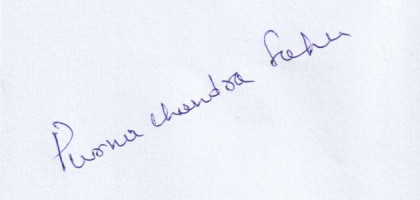 Purna Chandra Sahu